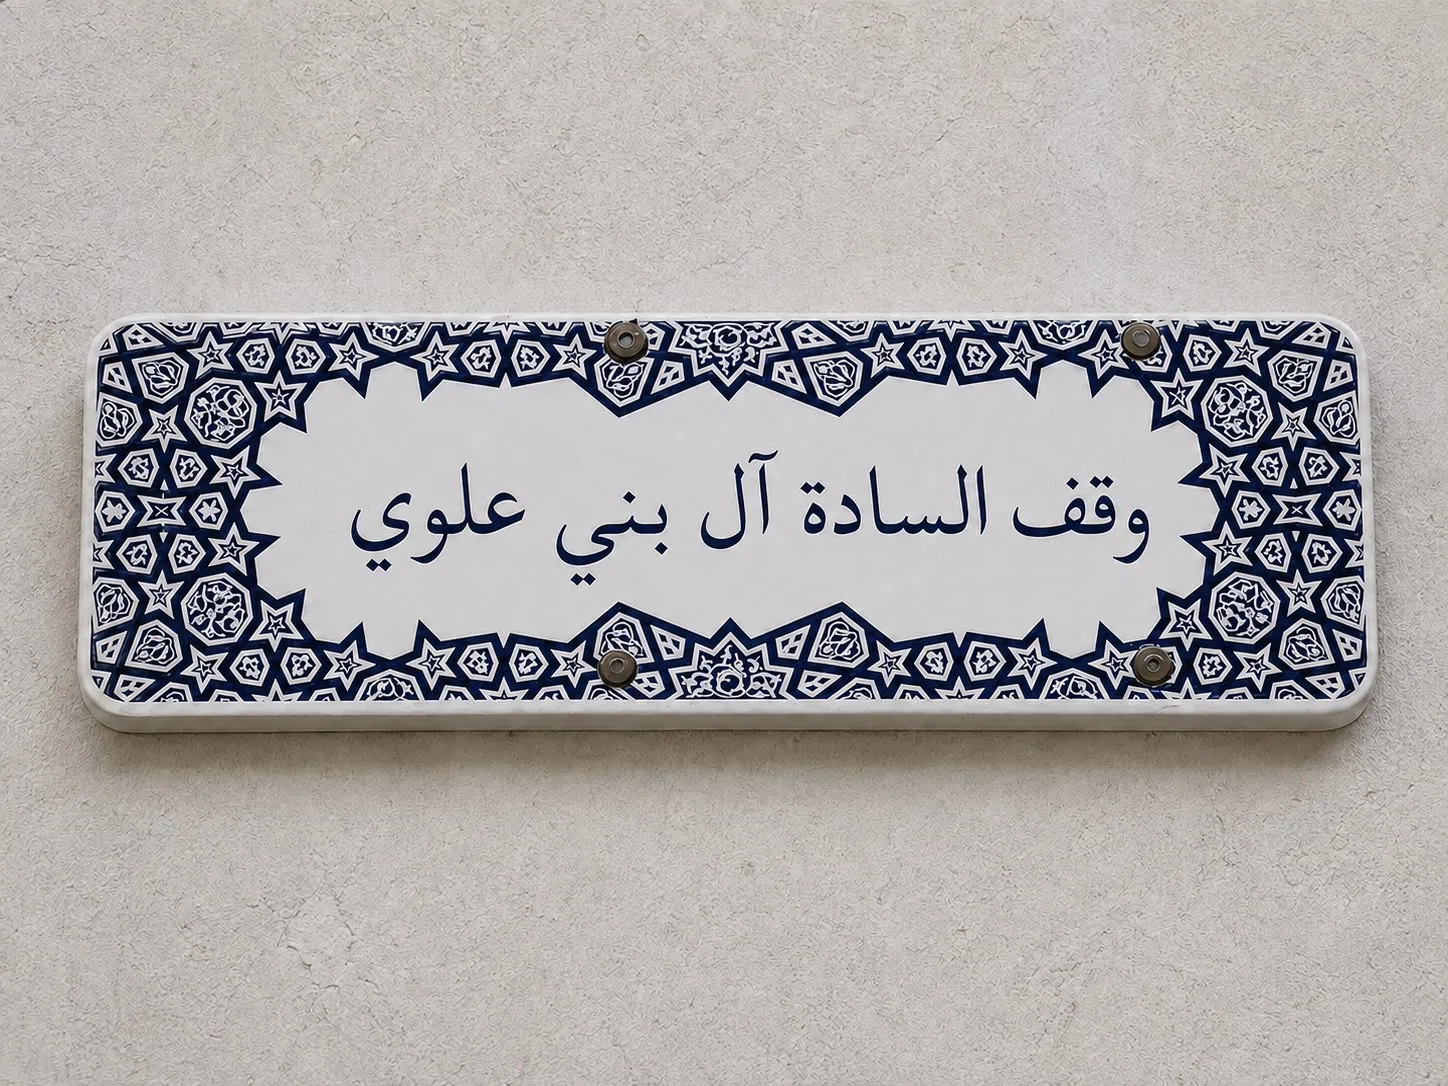 وقف السادة آل بني علوي